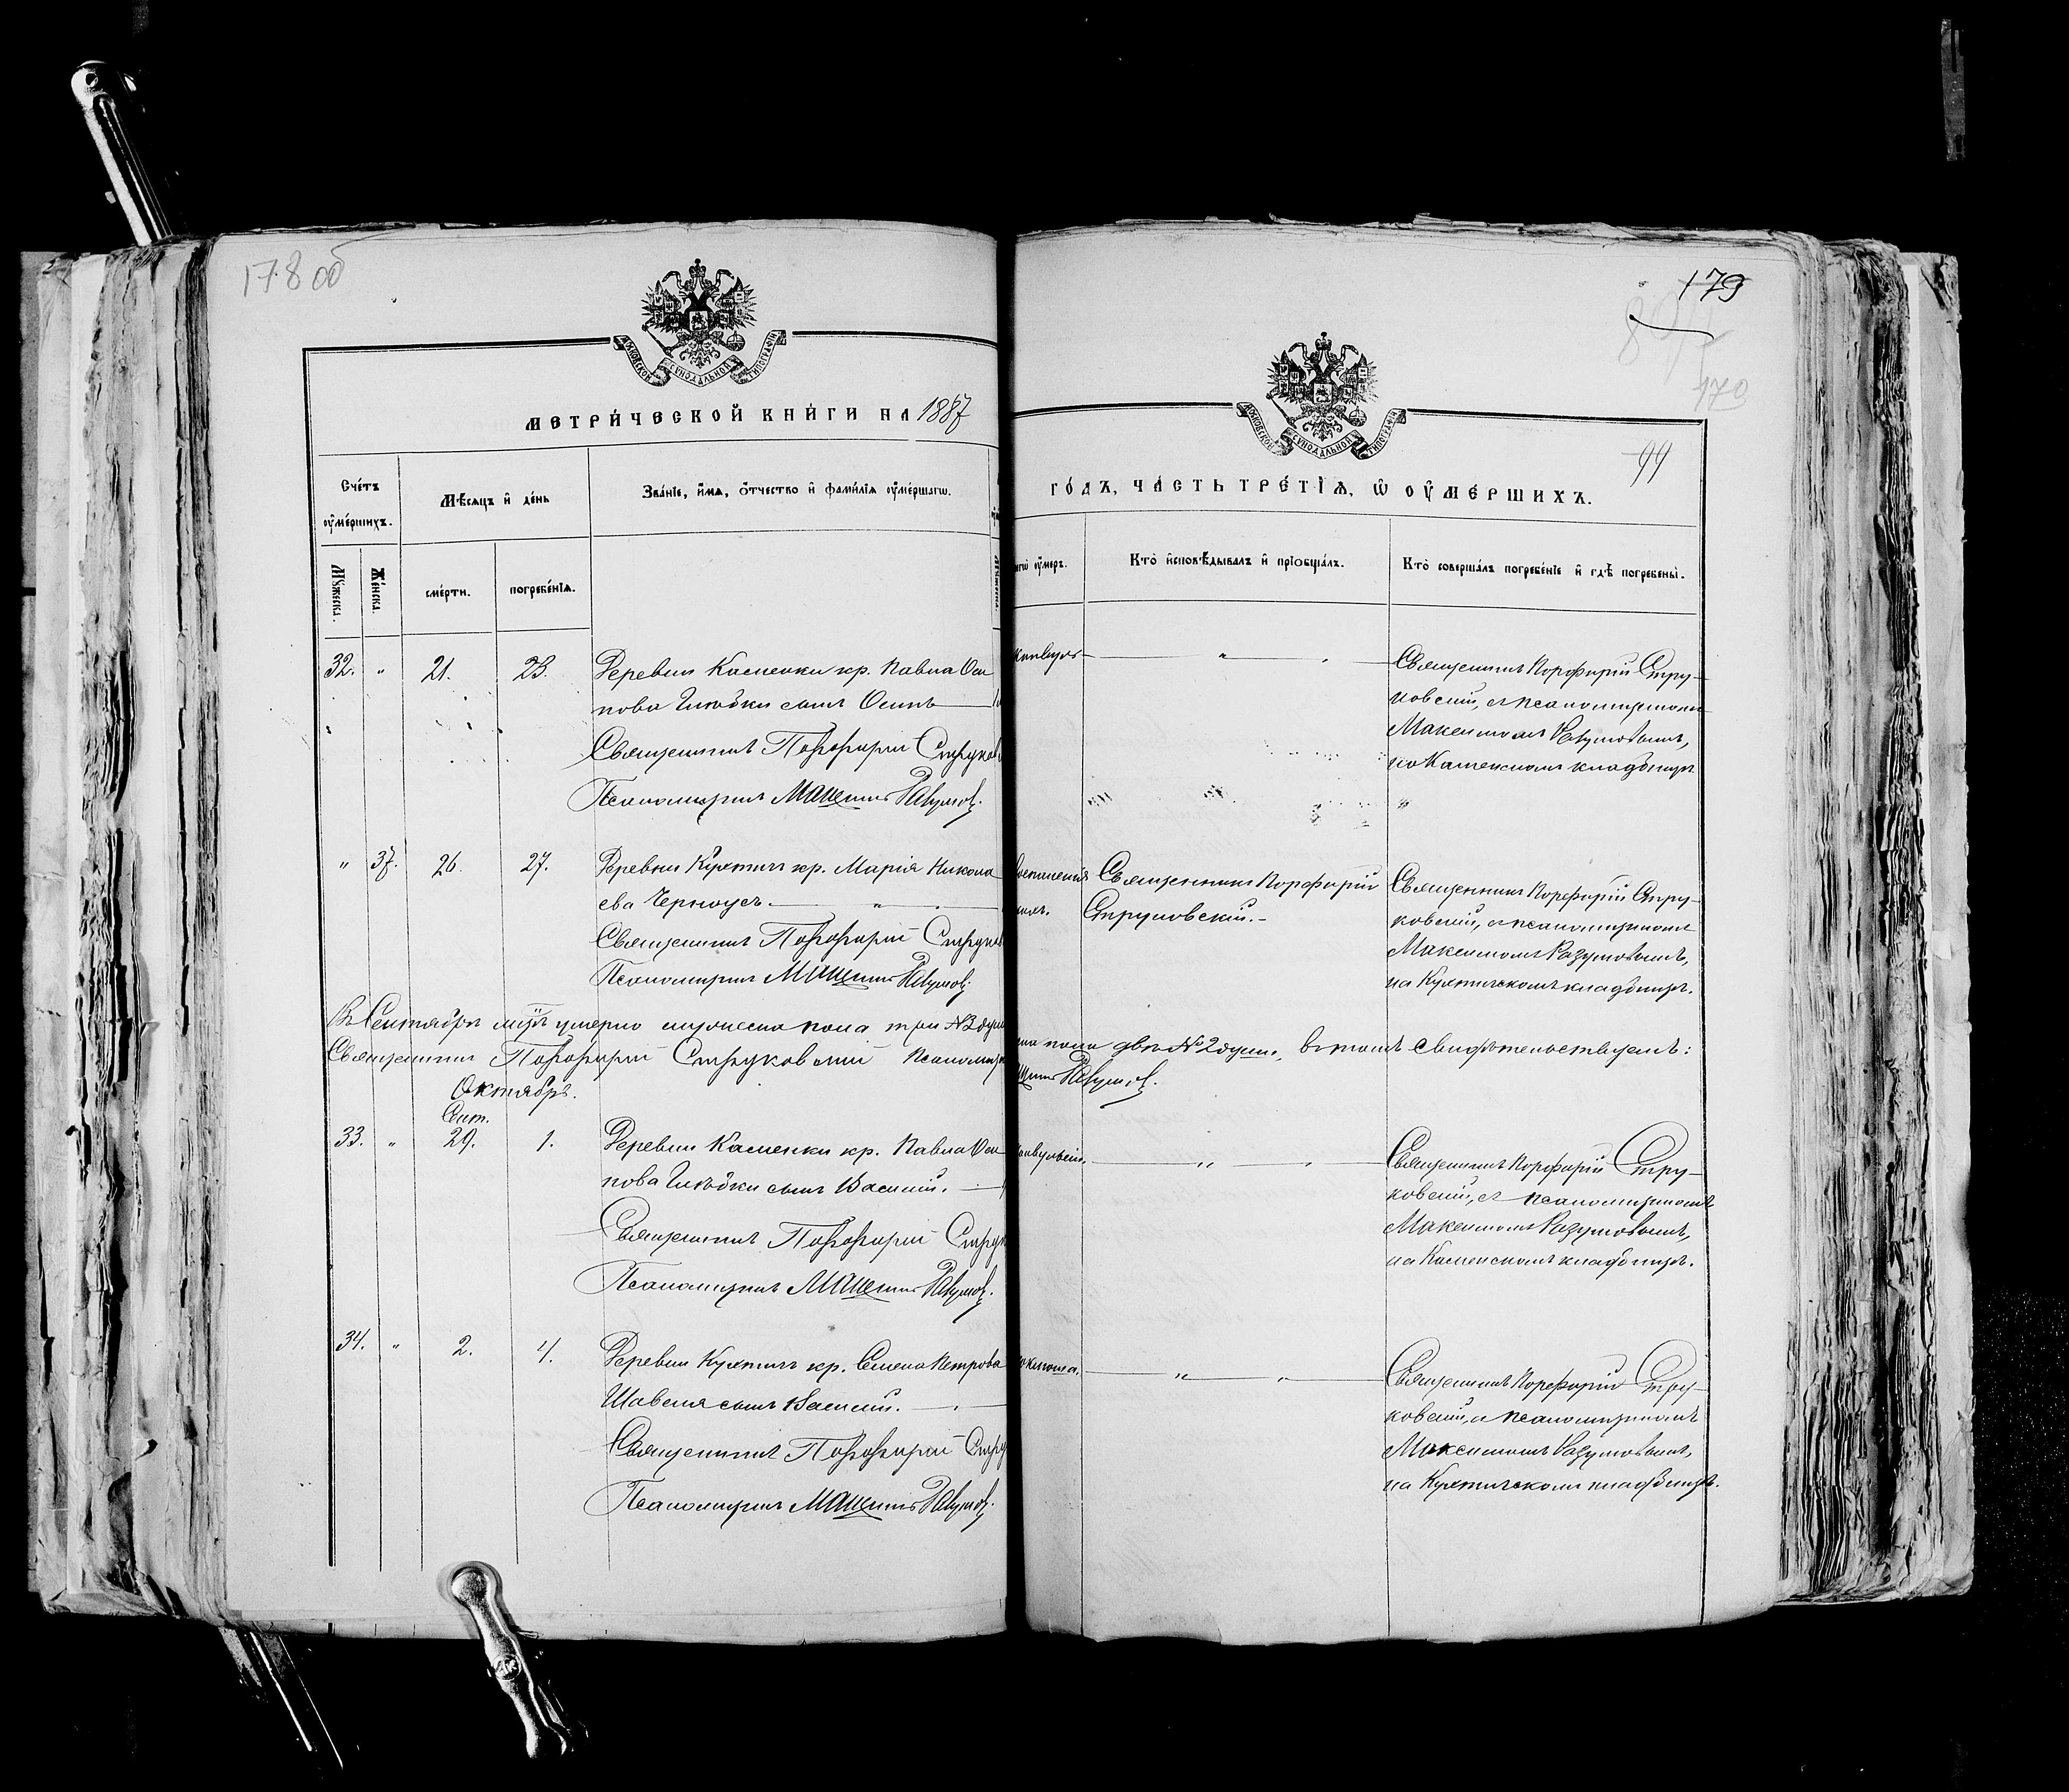 178 об
МЕТРИЧЕСКОЙ КНИГИ НА 1887
Счетъ умершихъ.
Мѣсяцъ и день
Званіе, имя, отчество и фамилія умершагω.
Мужеска.
Женска.
смерти.
погребенія.
32. " 21. 23. Деревни Каменки кр. Павла Оси
пова Глѣбки сынъ Осипъ
Священникъ Порфирій Струков
Псаломщикъ Максимъ Разумов.
" 37. 26. 27. Деревни Кухтичъ кр. Марія Никола
ева Черноусъ.
Священникъ Порфирій Струков
Псаломщикъ Максимъ Разумов.
Въ Сентябрѣ м-цѣ умерло мужеска пола три №3 души
Священникъ Порфирій Струковскій Псаломщи
Октябрь.
Сент.
33. " 29. 1. Деревни Каменки кр. Павла Оси
пова Глѣбки сынъ Василій.
Священникъ Порфирій Струк
Псаломщикъ Максимъ Разумов.
34. " 2. 4. Деревни Кухтичъ кр. Семена Петрова
Шавеля сынъ Василій.
Священникъ Порфирій Стру
Псаломщикъ Максимъ Разумов.
179
170
99
ГОДЪ, ЧАСТЬ ТРЕТІЯ, Ѡ УМЕРШИХЪ.
чегω умеръ.
Кто исповѣдывалъ и пріобщалъ.
Кто совершалъ погребеніе и гдѣ погребены.
Священникъ Порфирій Стру-
ковскій, съ псаломщикомъ
Максимомъ Разумовымъ,
на Каменскомъ кладбищѣ.
Священникъ Порфирій
Струковскій.-
Священникъ Порфирій Стру-
ковскій, съ псаломщикомъ
Максимомъ Разумовымъ,
на Кухтичскомъ кладбищѣ.
ка пола двѣ №2 души, въ томъ свидѣтельствуемъ:
Разумов.
Священникъ Порфирій Стру-
ковскій, съ псаломщикомъ
Максимомъ Разумовымъ,
на Каменскомъ кладбищѣ.
Священникъ Порфирій Стру-
ковскій, съ псаломщикомъ
Максимомъ Разумовымъ,
на Кухтичскомъ кладбищѣ.